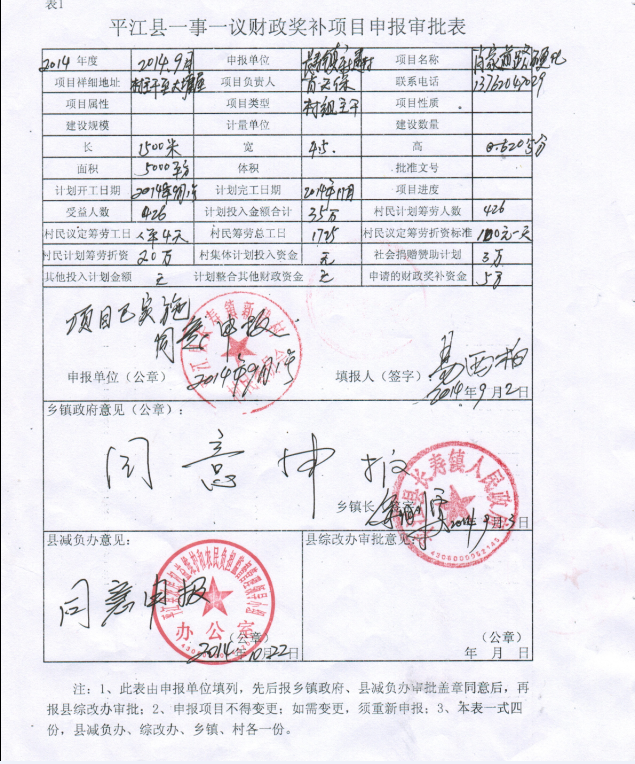 表1
平江县一事一议财政奖补项目申报审批表
2014 年度 2014.9月 申报单位 长寿镇 项目名称
项目祥细地址 项目负责人 联系电话 13762047029
项目属性 项目类型 村组主干 项目性质
建设规模 计量单位 建设数量
长 1500米 宽 4.5 高 0.20公分
面积 5000平方 体积 批准文号
计划开工日期 2014年9月1号 计划完工日期 2014年11月 项目进度
受益人数 426 计划投入金额合计 35万 村民计划筹劳人数 426
村民议定筹劳工日 人年4天 村民筹劳总工日 1725 村民议定筹劳折资标准 100元一天
村民计划筹劳折资 20万 村集体计划投入资金 元 社会捐赠赞助计划 3万
其他投入计划金额 元 计划整合其他财政资金 元 申请的财政奖补资金 5万
项目已实施
同意申报.
2014年9月1号
申报单位（公章） 填报人（签字）:
2014年9月2日
乡镇政府意见（公章）:
同意申报
乡镇长
2014年9月3日
长寿镇人民政府
4306000052145
县减负办意见: 县综改办审批意见:
同意申报
办公室
（公章） （公章）
2014年10月22日 年 月 日
注：1、此表由申报单位填列，先后报乡镇政府、县减负办审批盖章同意后，再
报县综改办审批；2、申报项目不得变更；如需变更，须重新申报；3、本表一式四
份，县减负办、综改办、乡镇、村各一份。